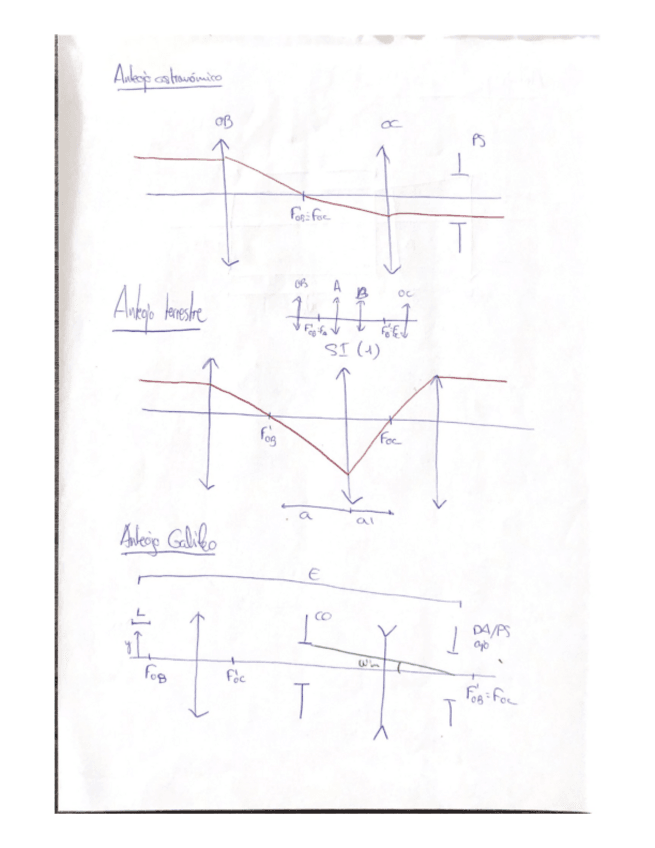 Anteojo astronómico
OB OC PS
F'OB=FOC
Anteojo terrestre
OB A B OC
F'OB=FA F'B=FC
SI (1)
F'OB FOC
a a'
Anteojo Galileo
E
L CO DA/PS
y ojo
Wim
FOB F'OC F'OB=FOC